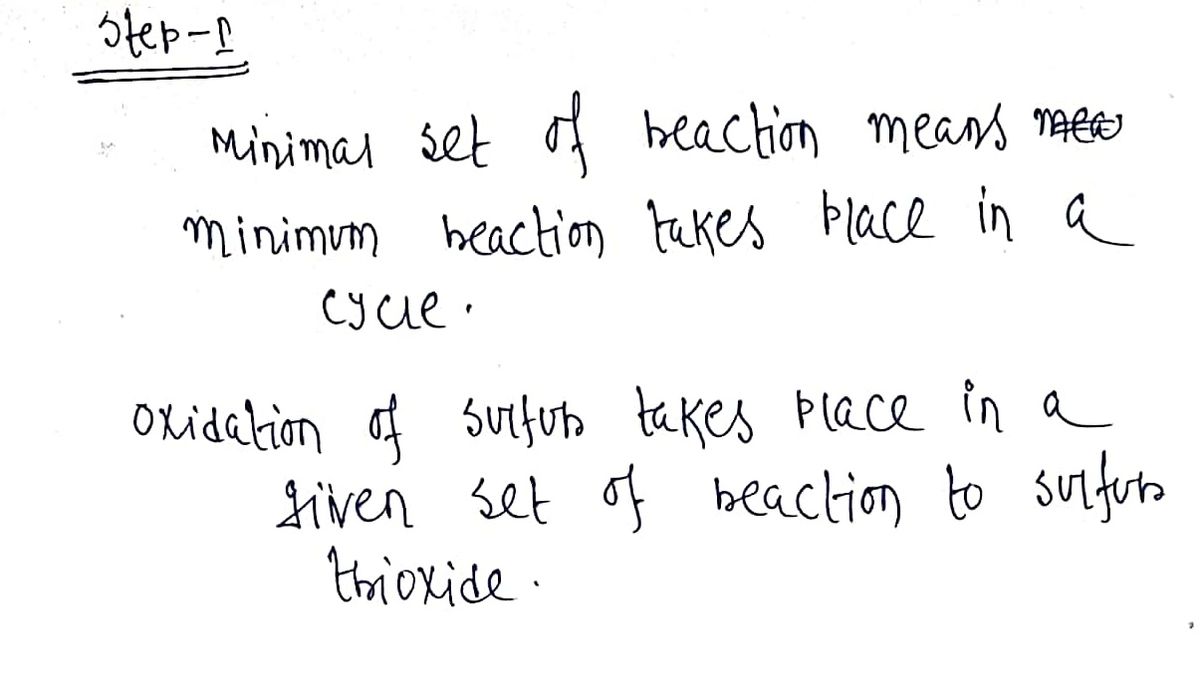 Step-1
Minimal set of reaction means
minimum reaction takes place in a
cycle.
oxidation of sulfur takes place in a
given set of reaction to sulfur
trioxide.